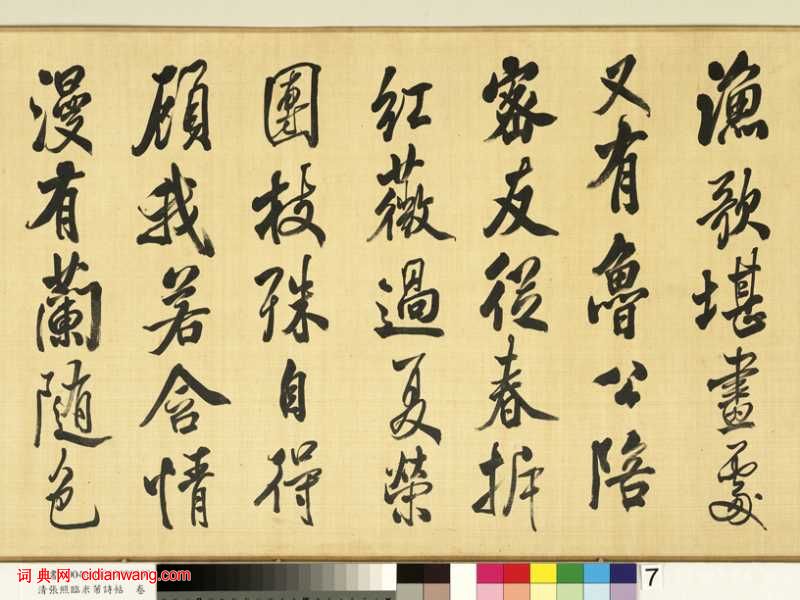 漁歌堪畫處
又有魯公陪
密友從春拆
紅薇過夏榮
團枝殊自得
顧我若含情
漫有蘭隨色
词典网 cidianwang.com
清張照臨米芾詩帖 卷
7